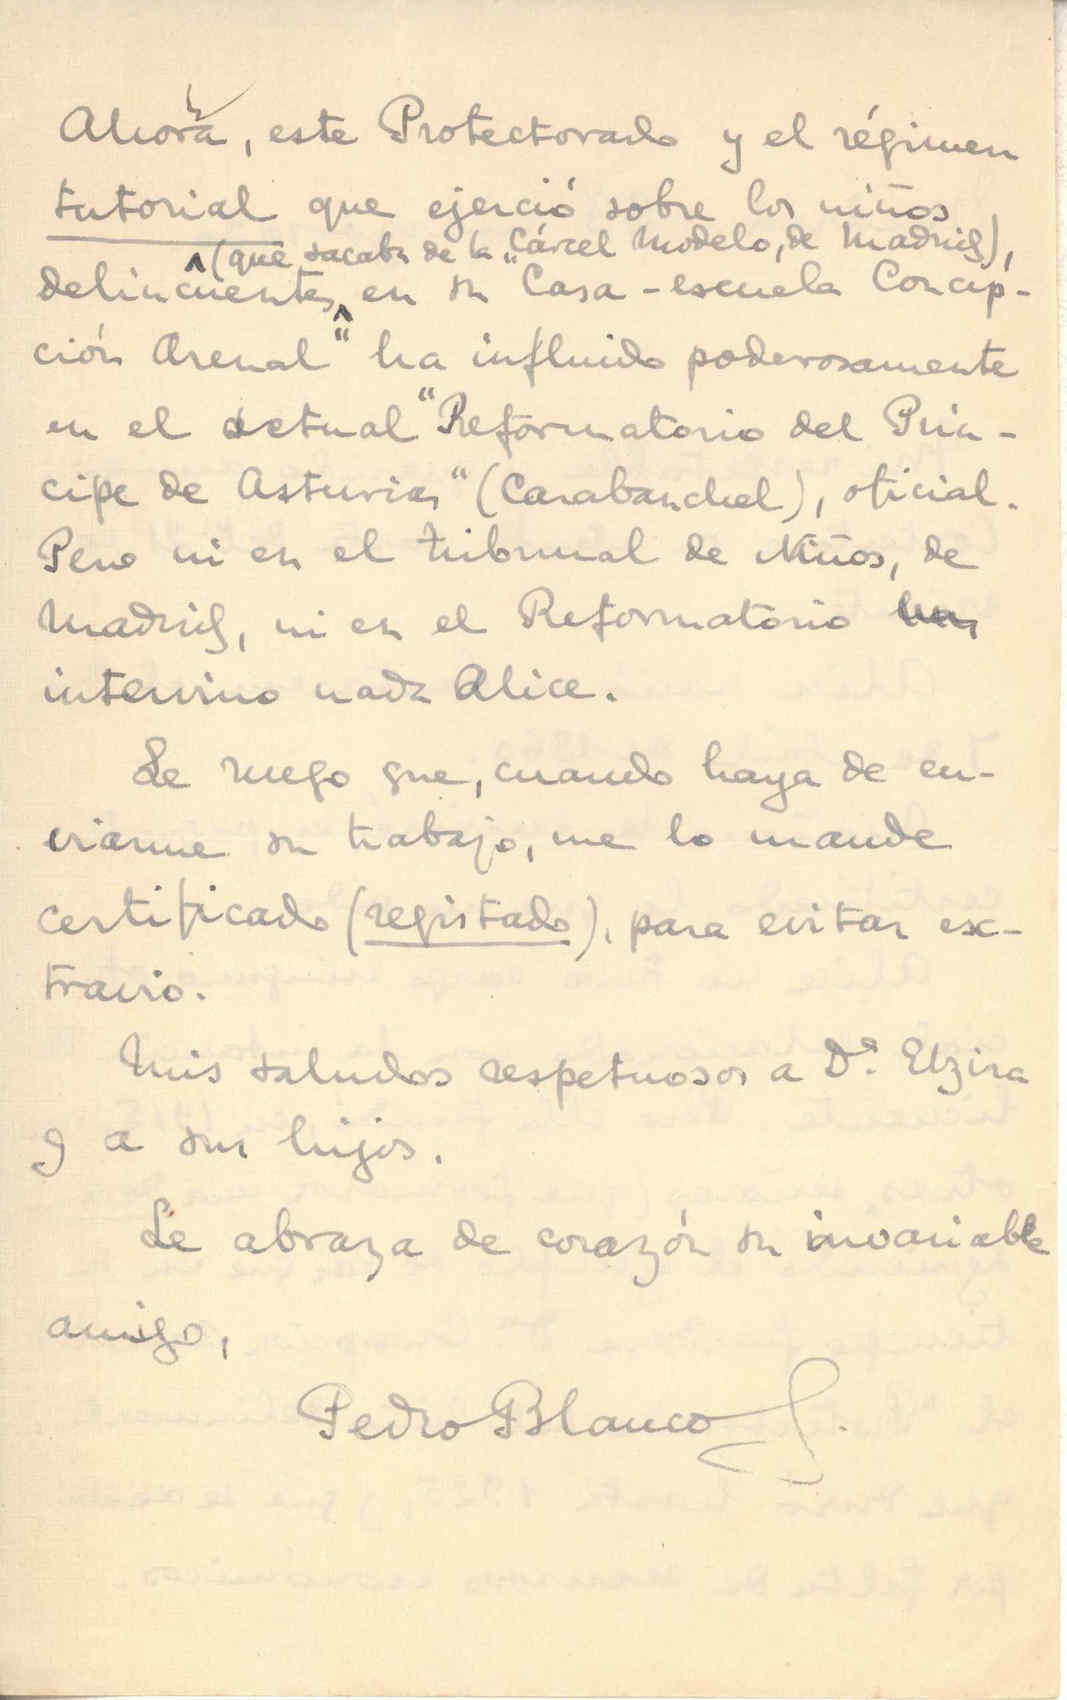 Ahora, este Protectorado y el régimen
tutorial que ejerció sobre los niños
(que sacaba de la Cárcel Modelo, de Madrid),
delincuentes, en su "Casa-escuela Concep-
ción Arenal" ha influido poderosamente
en el actual "Reformatorio del Prín-
cipe de Asturias" (Carabanchel), oficial.
Pero ni en el tribunal de Niños, de
Madrid, ni en el Reformatorio
intervino nada Alice.
Le ruego que, cuando haya de en-
viarme su trabajo, me lo mande
certificado (registado), para evitar ex-
travio.
Mis saludos respetuosos a Dª. Elzira
y a sus hijos.
Le abraza de corazón su invariable
amigo,
Pedro Blanco S.